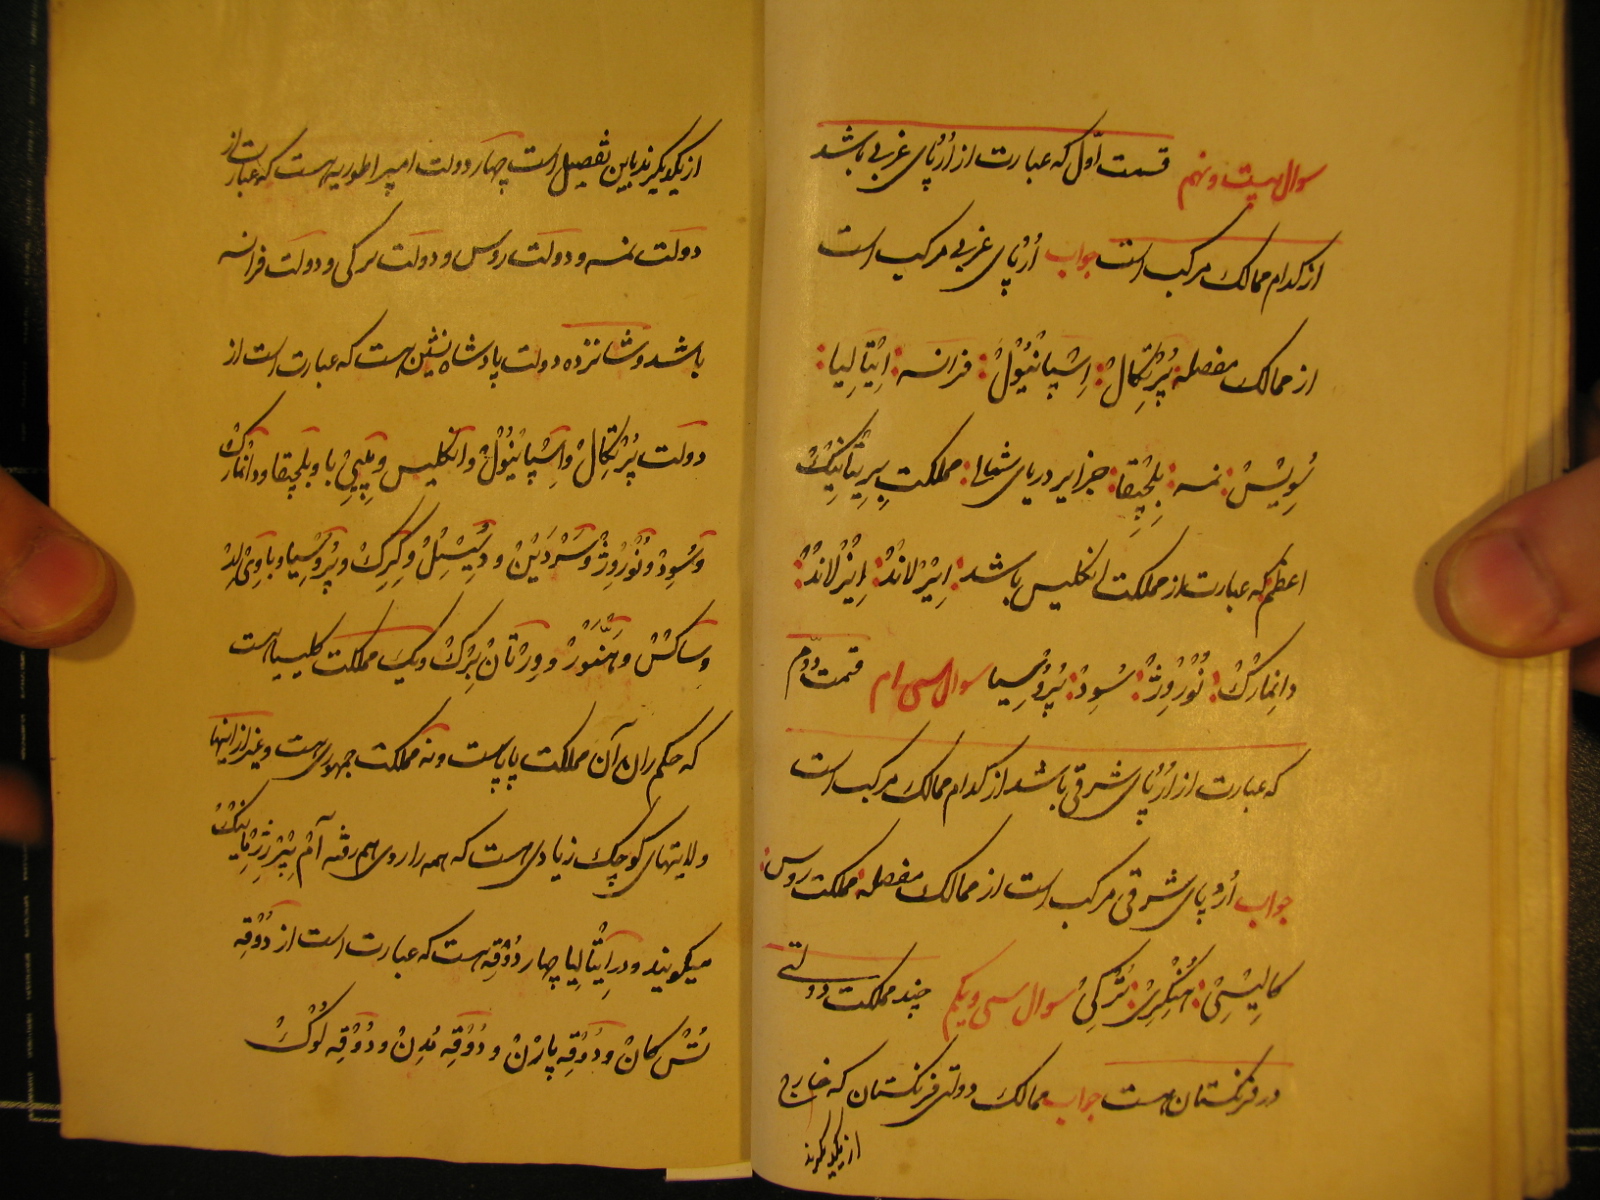 سوال بیست و نهم قسمت اوّل که عبارت از اُرُپای غربی باشد
از کدام ممالک مرکب است جواب اُرُپای غربی مرکب است
از ممالک مفصله پُرْتِکالْ: اِسْپانْیُولْ: فرانسه: اِیْتالِیا:
سُوِیْسْ: نمسه: بِلْجِیْقا: جزایر دریای شمال: مملکت بِرِیْتانِیْکْ
اعظم که عبارت از مملکت انکلیس باشد: اِیْرْلانْدْ: اِیْزْلانْدْ:
دانِمارْکْ: نُوْرْوِژْ: سُوِدْ: پُرُوسِیا سوال سی ام قسمت دوّم
که عبارت از اُرُپای شرقی باشد از کدام ممالک مرکب است
جواب اُرُپای شرقی مرکب است از ممالک مفصله: مملکت روس:
کالِیْسِیْ: هُنْکِرِیْ: تُرْکِیْ سوال سی و یکم چند مملکت دولتی
در فرنکستان هست جواب ممالک دولتی فرنکستان که خارج
از یکدیکرند
از یکدیکرند باین تفصیل است چهار دولت امپراطوریه هست که عبارت از
دولت نمسه و دولت روس و دولت ترکی و دولت فرانسه
باشد و شانزده دولت پادشاه نشین هست که عبارت است از
دولت پُرْتِکالْ و اِسْپانْیُولْ و انکلیس و بلجیقا و دانمارْکْ
و سُوِدْ و نُوْرْوِژْ و سَرْدَیْنْ و دِسِیْسِلْ و کِرِکْ و پُرُوسِیا و باوِیْ
و ساکْسْ و هَنَّوْرْ و وِرْتانْ بِرْکْ و یک مملکت کلیسیا هست
که حکم ران آن مملکت پاپ است و نه مملکت جمهوری هست و غیر از اینها
ولایتهای کوچک زیادی هست که همه را روی هم رفته
میکویند و در اِیْتالِیا چهار دُوْقِه هست که عبارت است از دُوْقِه
تُسْکانْ و دُوْقِه پارْنْ و دُوْقِه مُدِنْ و دُوْقِه لُوْکْ